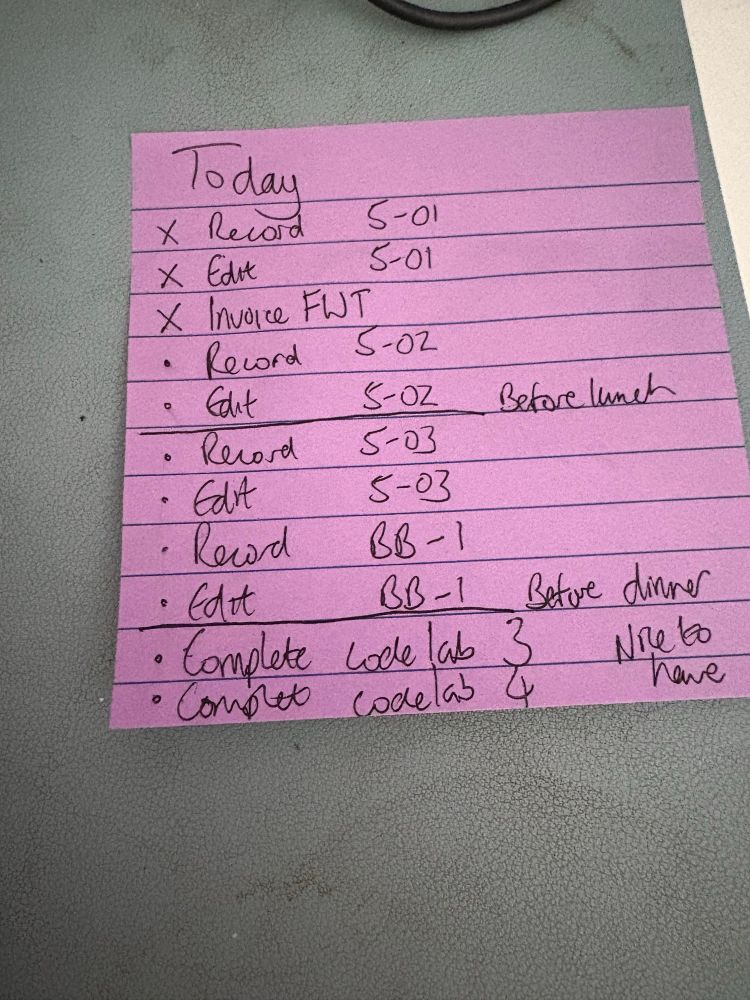 Today
X Record 5-01
X Edit 5-01
X Invoice FWT
• Record 5-02
• Edit 5-02 Before lunch
• Record 5-03
• Edit 5-03
• Record BB-1
• Edit BB-1 Before dinner
• Complete codelab 3 Nice to
• Complete codelab 4 have